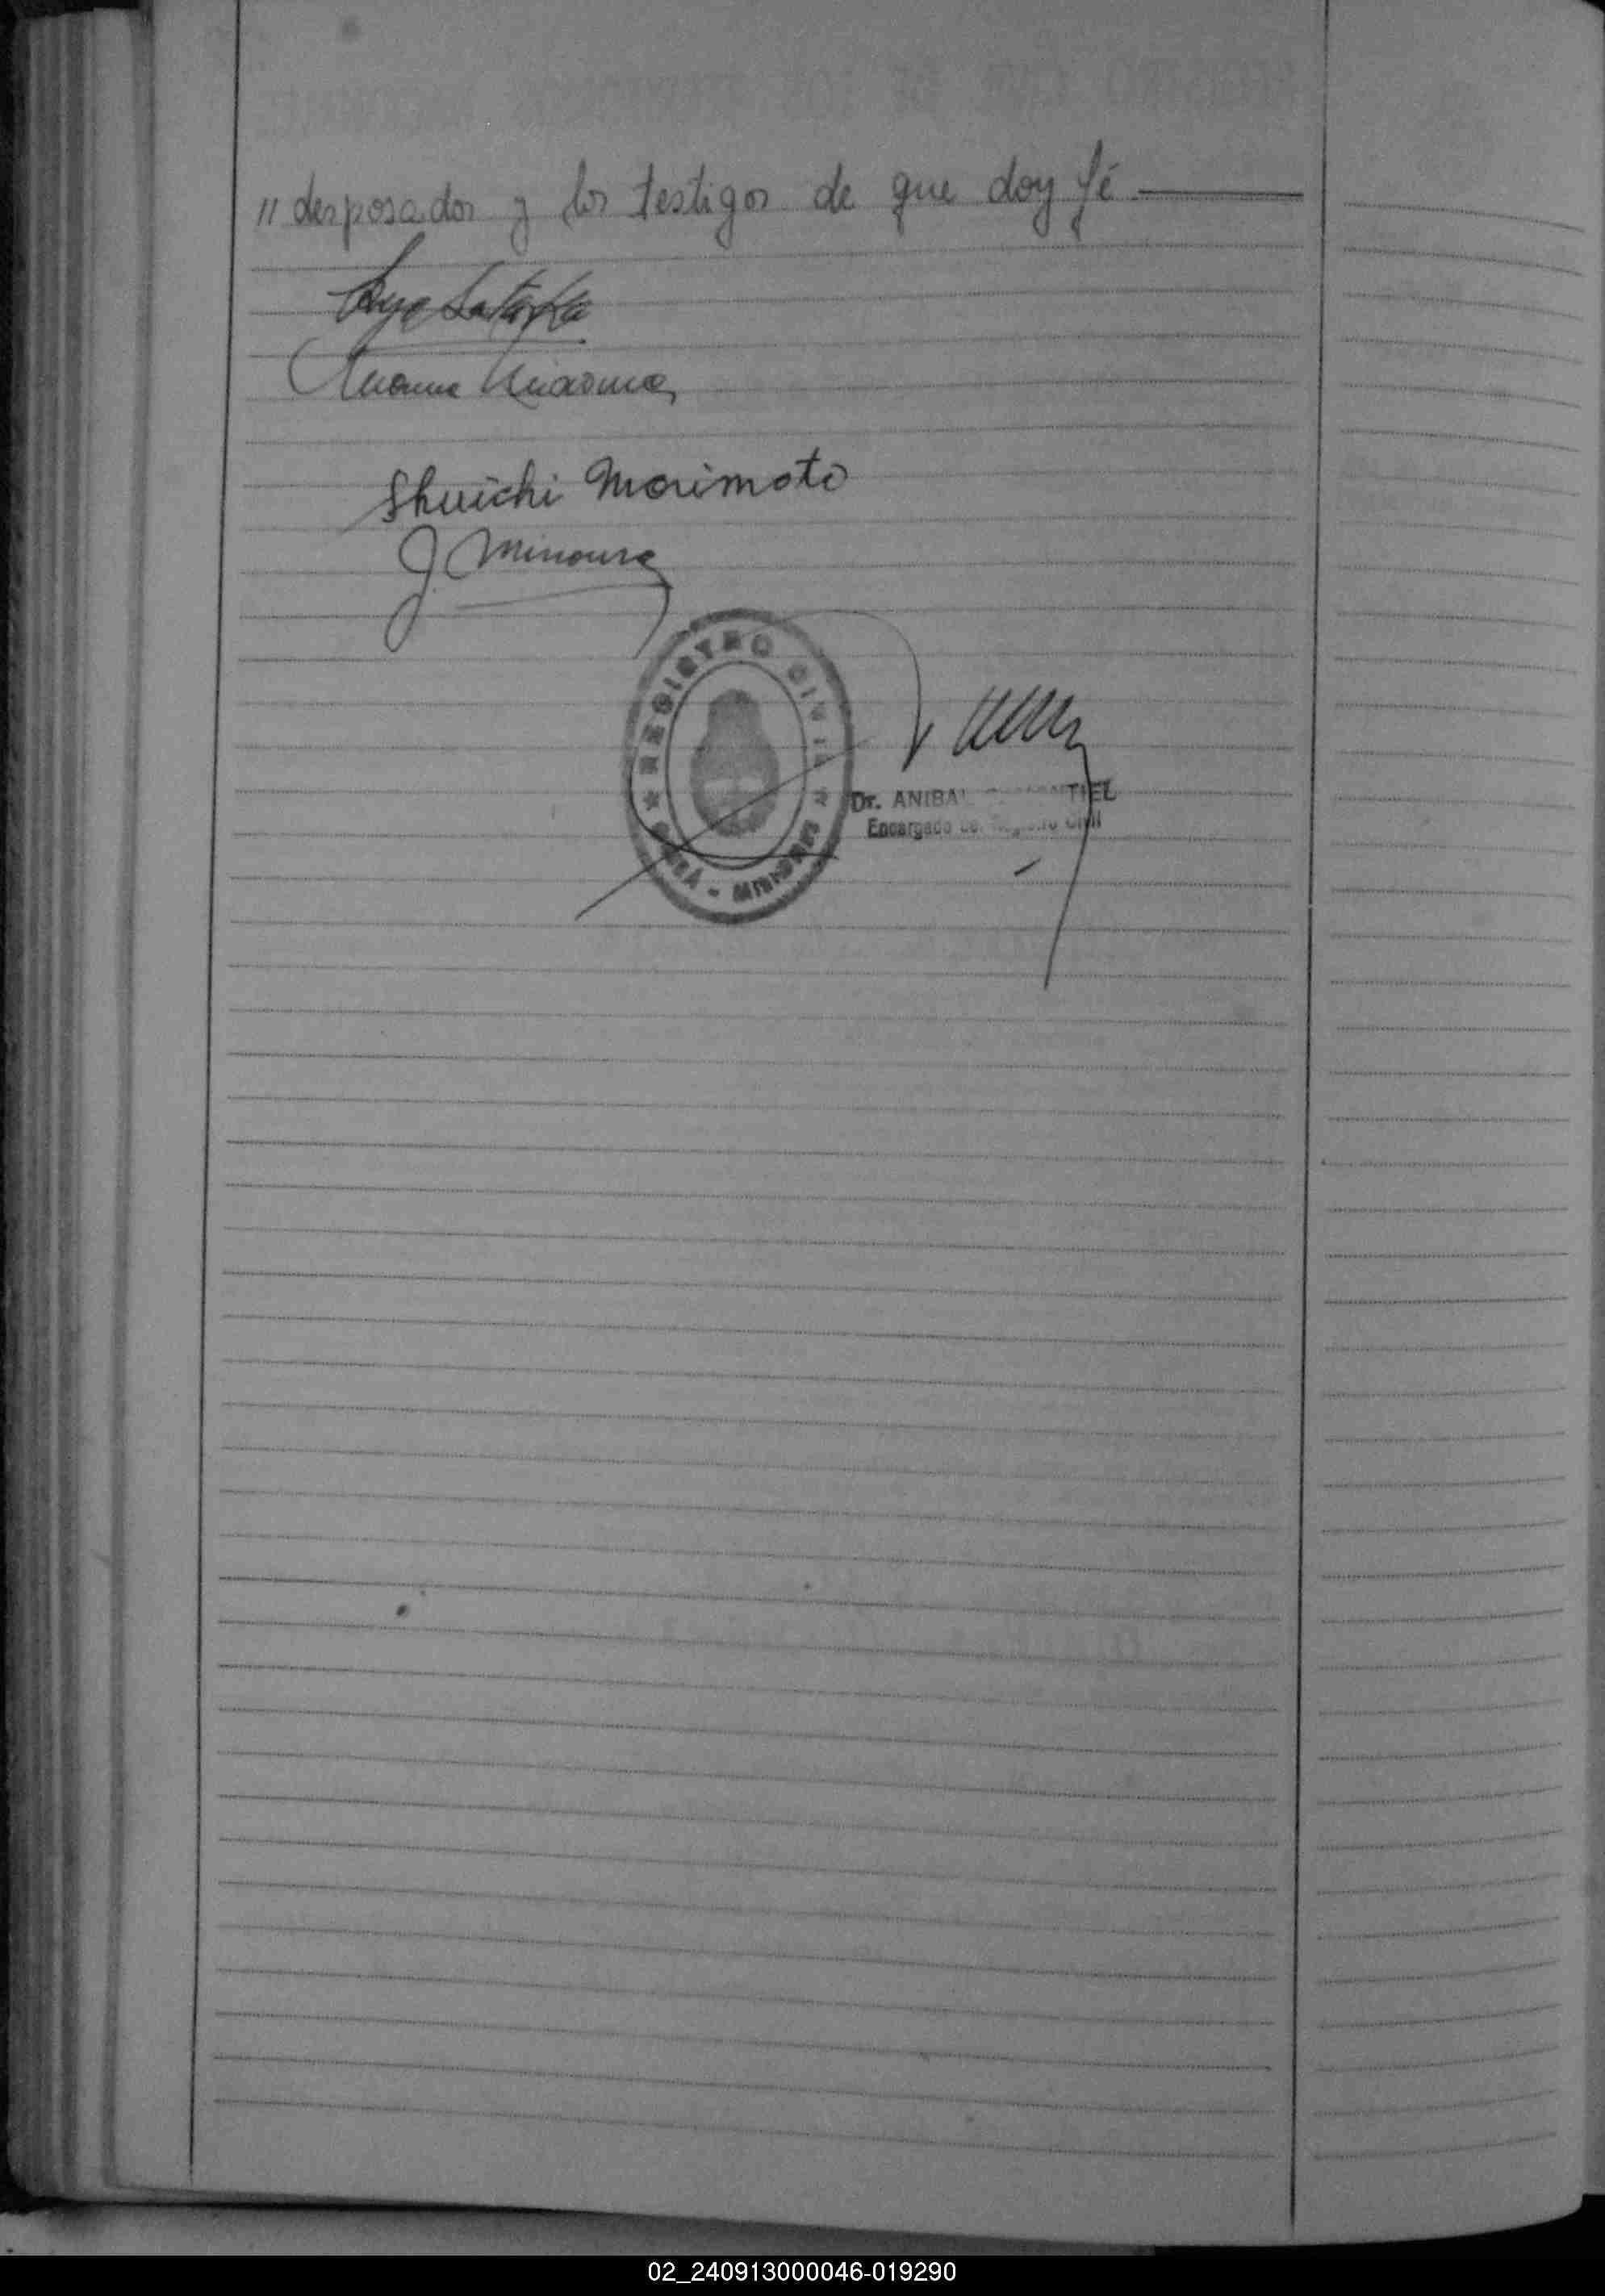 " desposados y los testigos de que doy fé
Shuichi Morimoto
J. Minoura
REGISTRO CIVIL
MISIONES
Dr. ANIBAL
Encargado del Registro Civil
02_240913000046-019290